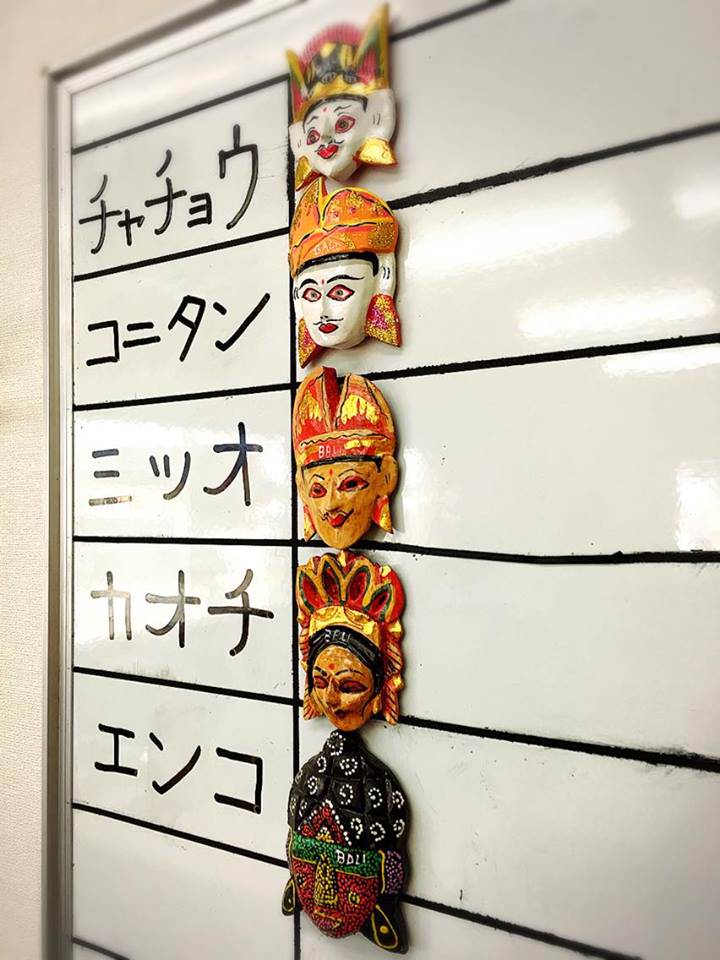 チャチョウ
BALI
コニタン
BALI
ミツオ
BALI
カオチ
エンコ
BALI